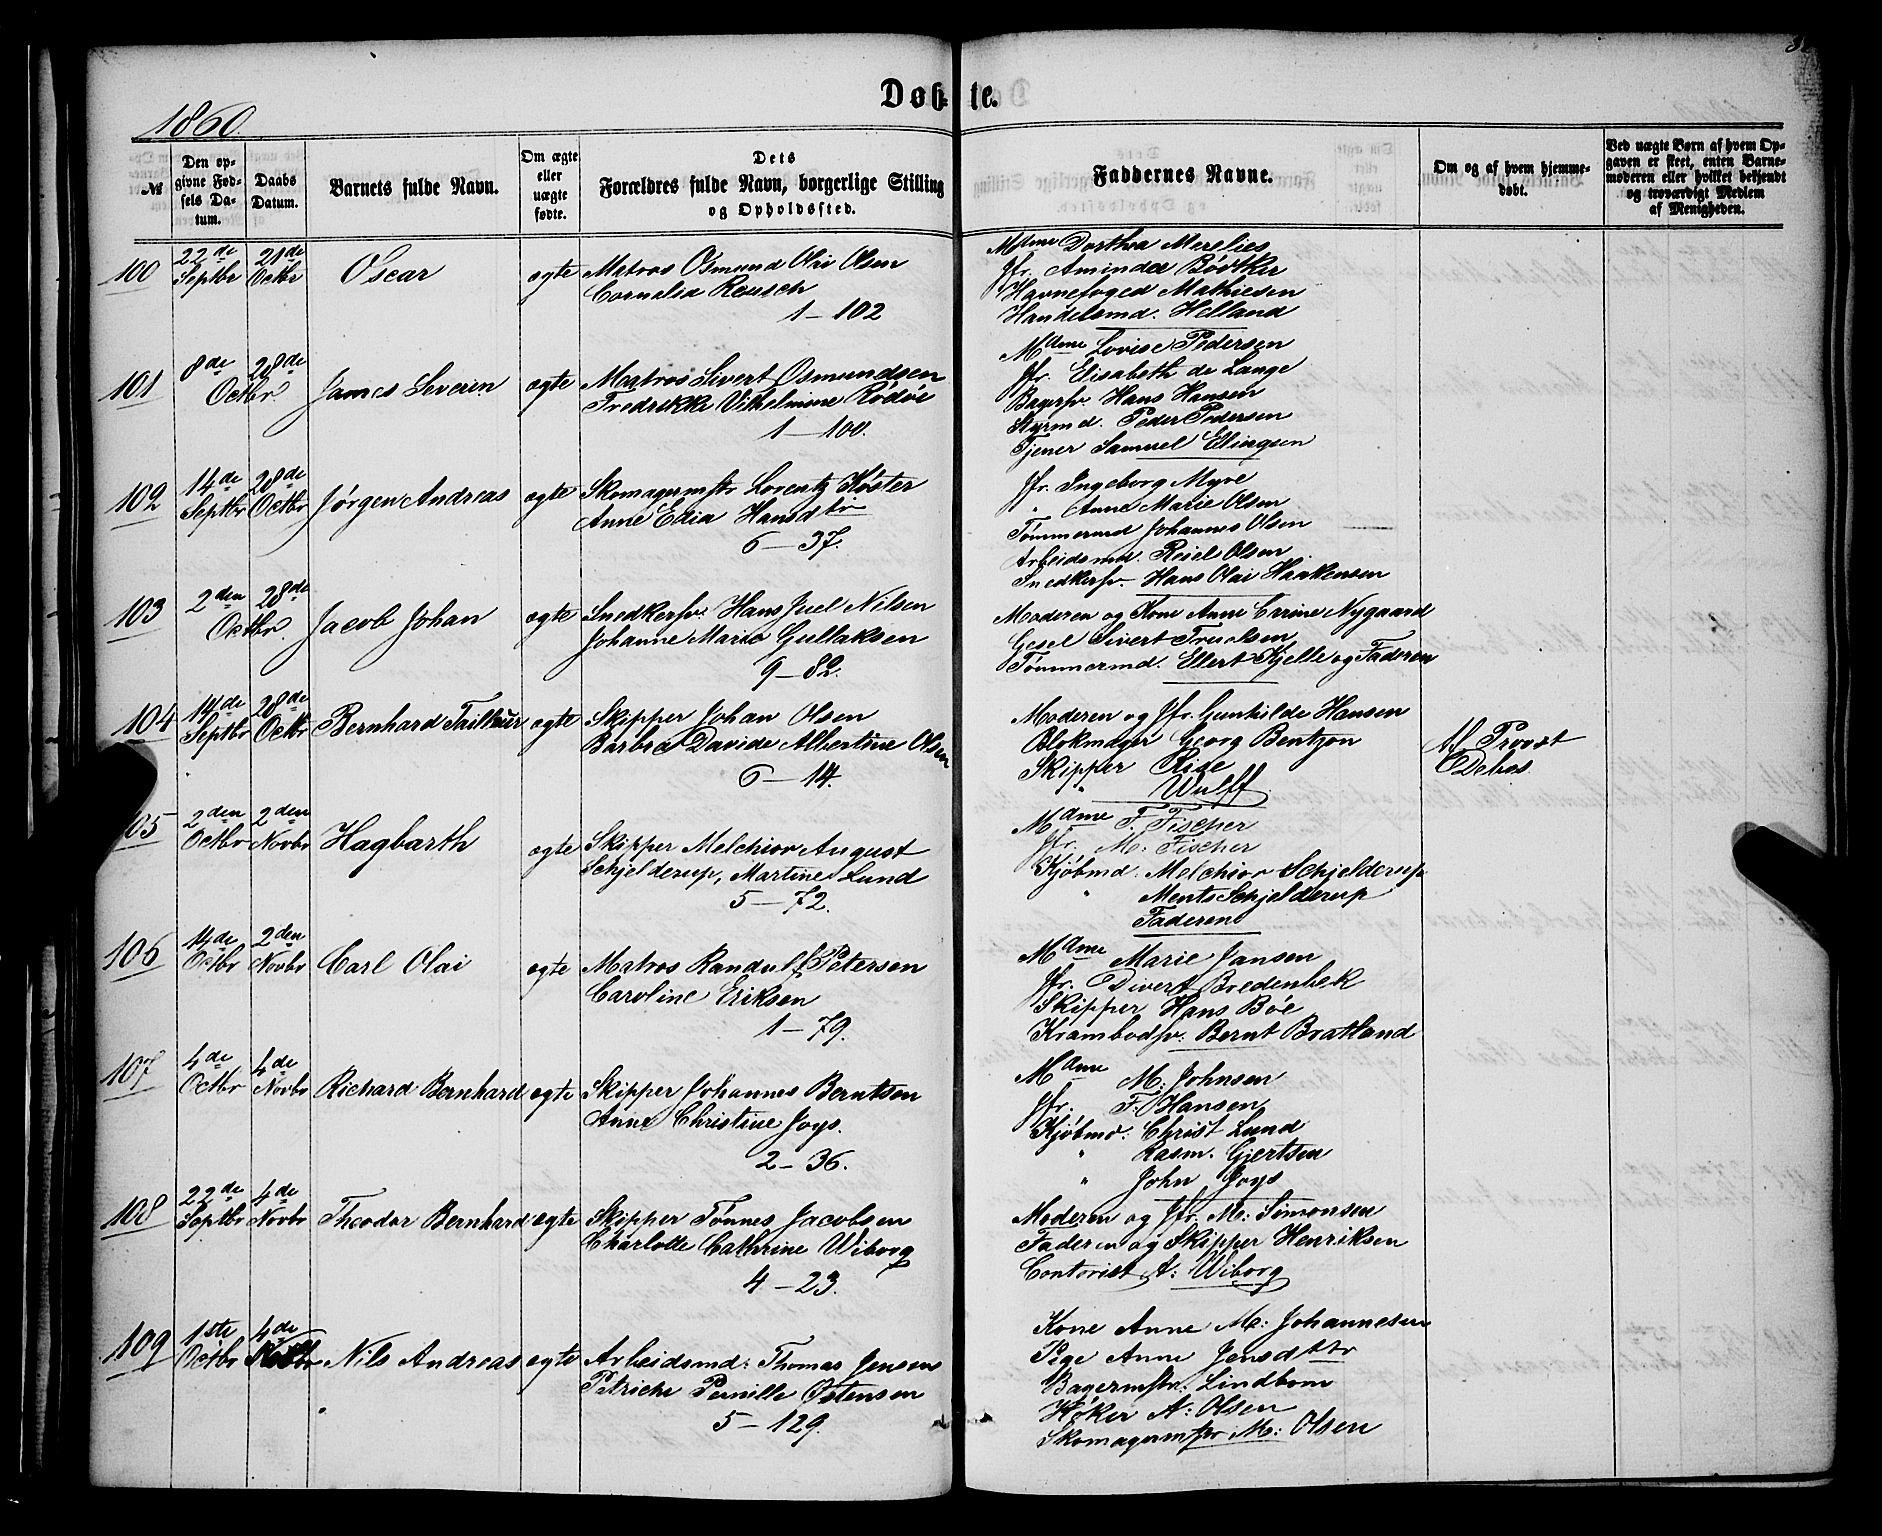 Døb- te.
1860.
№
Den opgivne Fødsels Datum.
Daabs Datum.
Barnets fulde Navn.
Om ægte eller uægte fødte.
Dets
Forældres fulde Navn, borgerlige Stilling
og Opholdssted.
Faddernes Navne.
Om og af hvem hjemmedøbt.
Ved uægte Børn af hvem Opgaven er skeet, enten Barnemoderen eller hvilket bekjendt og troværdigt Medlem af Menigheden.
100
22de Septbr
21de Octbr
Oscar
ægte
Matros Osmund Olai Olsen
Cornelia Reusch
1–102
Mdme Dorthea Merelies
Jfr. Aminda Bödtker
Havnefoged Mathiesen
Handelsmd. Helland
101
8de Octbr.
28de
James Severin
ægte
Matros Sivert Osmundsen
Fredrikke Vilhelmine Rödöe
1–100.
Mdme Lovise Pedersen
Jfr. Elisabeth de Lange
Bagersv. Hans Hansen
Styrmd. Peder Pedersen
Tjener Samuel Ellingsen
102
14de Septbr
28de Octbr
Jørgen Andreas
ægte
Skomagermstr Lorentz Köster
Anne Edia Hansdtr
6–37.
Jfr. Ingeborg Myre
" Anne Marie Olsen
Tömmermd Johannes Olsen
Arbeidsmd. Reiel Olsen
Snedkersv. Hans Olai Haakensen
103
2den Octbr.
28de
Jacob Johan
ægte
Snedkersv. Hans Juel Nilsen
Johanne Marie Gullaksen
9–82.
Moderen og Kone Anne Carine Nygaard
Gesel Sivert Truolsen
Tömmermd. Ellert Kjelle og Faderen
104
14de Septbr
28de Octbr
Bernhard
ægte
Skipper Johan Olsen
Barbra Davide Albertine Olsen
6–14.
Moderen og Jfr. Gunhilde Hansen
Blokmager Georg Bentzon
Skipper Riise
" Wulff
Af Provst
Debes.
105
2den Octbr
2den Novbr
Hagbarth
ægte
Skipper Melchior August
Schjelderup, Martine Lund
5–72.
Mdme F. Fischer
Jfr. M. Fischer
Kjöbmd. Melchior Schjelderup
" Ments Schjelderup
Faderen
106
14de Octbr
2den Novbr
Carl Olai
ægte
Matros Randulf Petersen
Caroline Eriksen
1–79.
Mdme Marie Jansen
Jfr. Divert Bredenbek
Skipper Hans Böe
Krambodsv. Bernt Bratland
107
4de Octbr
4de Novbr
Richard Bernhard
ægte
Skipper Johannes Berntsen
Anne Christine Joys.
2–36.
Mdme M. Johnsen
Jfr. F. Hansen
Kjöbmd. Christ Lund
" Rasm. Gjertsen
" John Joys
108
22de Septbr
4de Novbr
Theodor Bernhard
ægte
Skipper Tönnes Jacobsen
Charlotte Cathrine Wiborg
4–23.
Moderen og Jfr. M. Simonsen
Faderen og Skipper Henriksen
Contorist A: Wiborg
109
1ste Octbr
4de
Nils Andreas
ægte
Arbeidsmd: Thomas Jensen
Petriche Pernille Östensen
5–129.
Kone Anne M: Johannesen
Pige Anne Jensdttr
Bagermstr. Lindbom
Höker A: Olsen
Skomagermstr M: Olsen